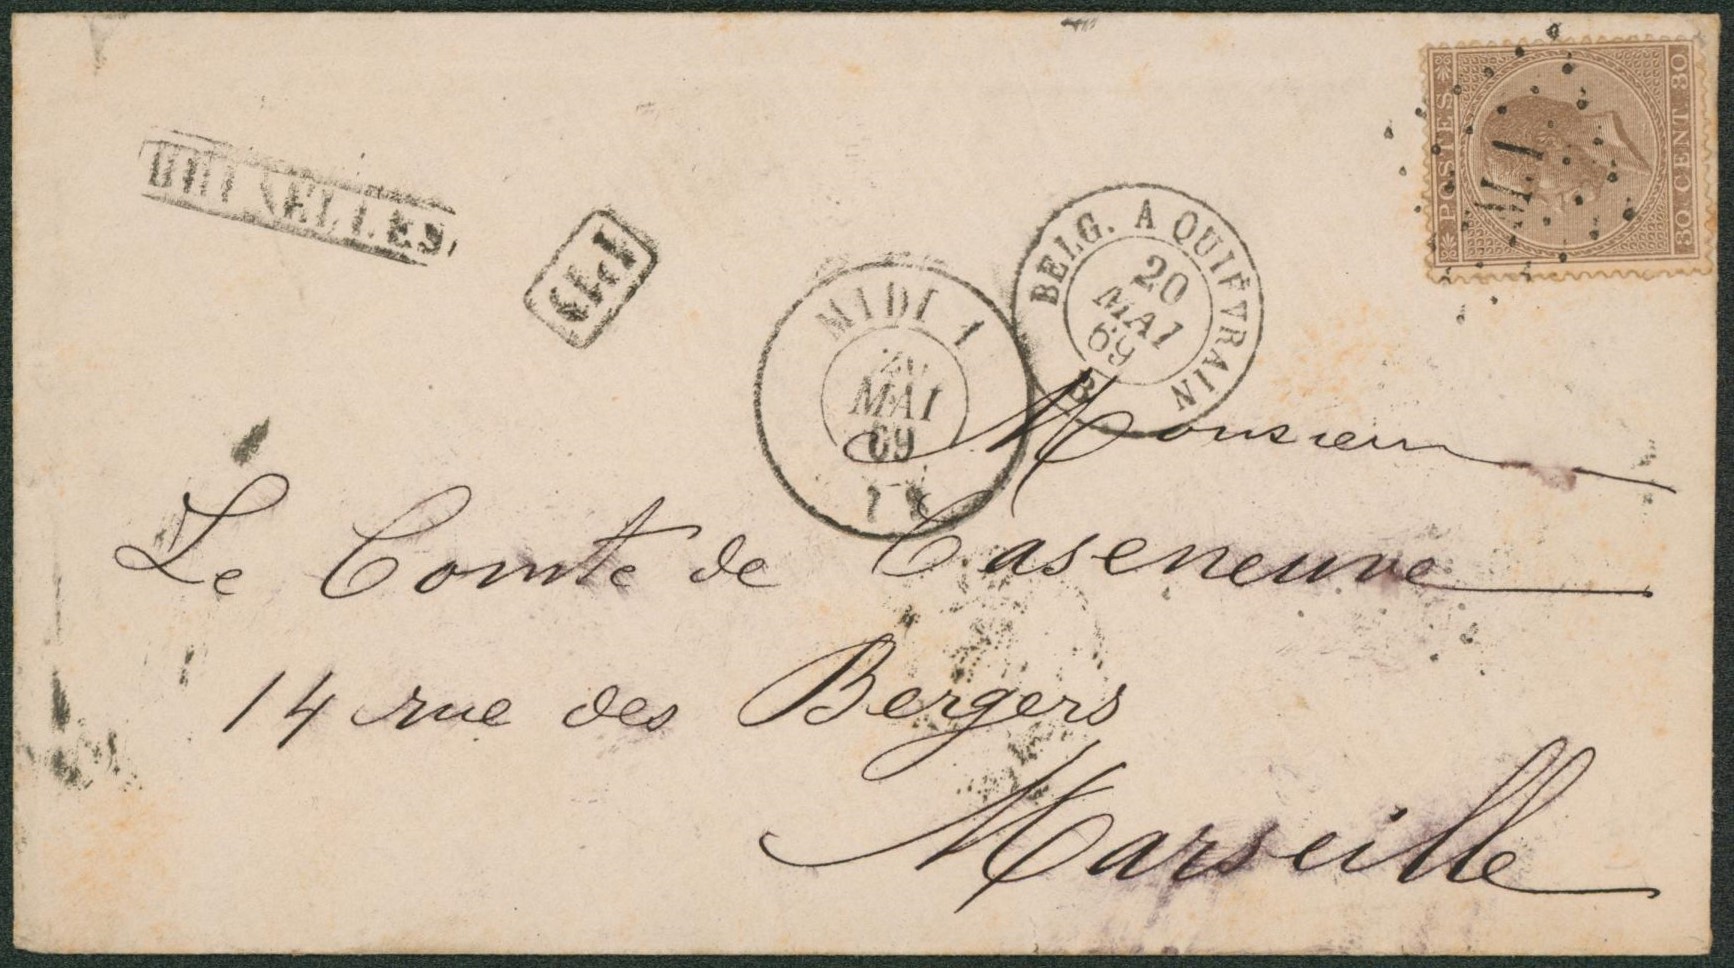 POSTES
30. CENT. 30
M.I
BRUXELLES
PD
BELG. A QUIÉVRAIN
20
MAI
69
MIDI 1
20
MAI
69
Monsieur
Le Comte de Caseneuve
14 rue des Bergers
Marseille